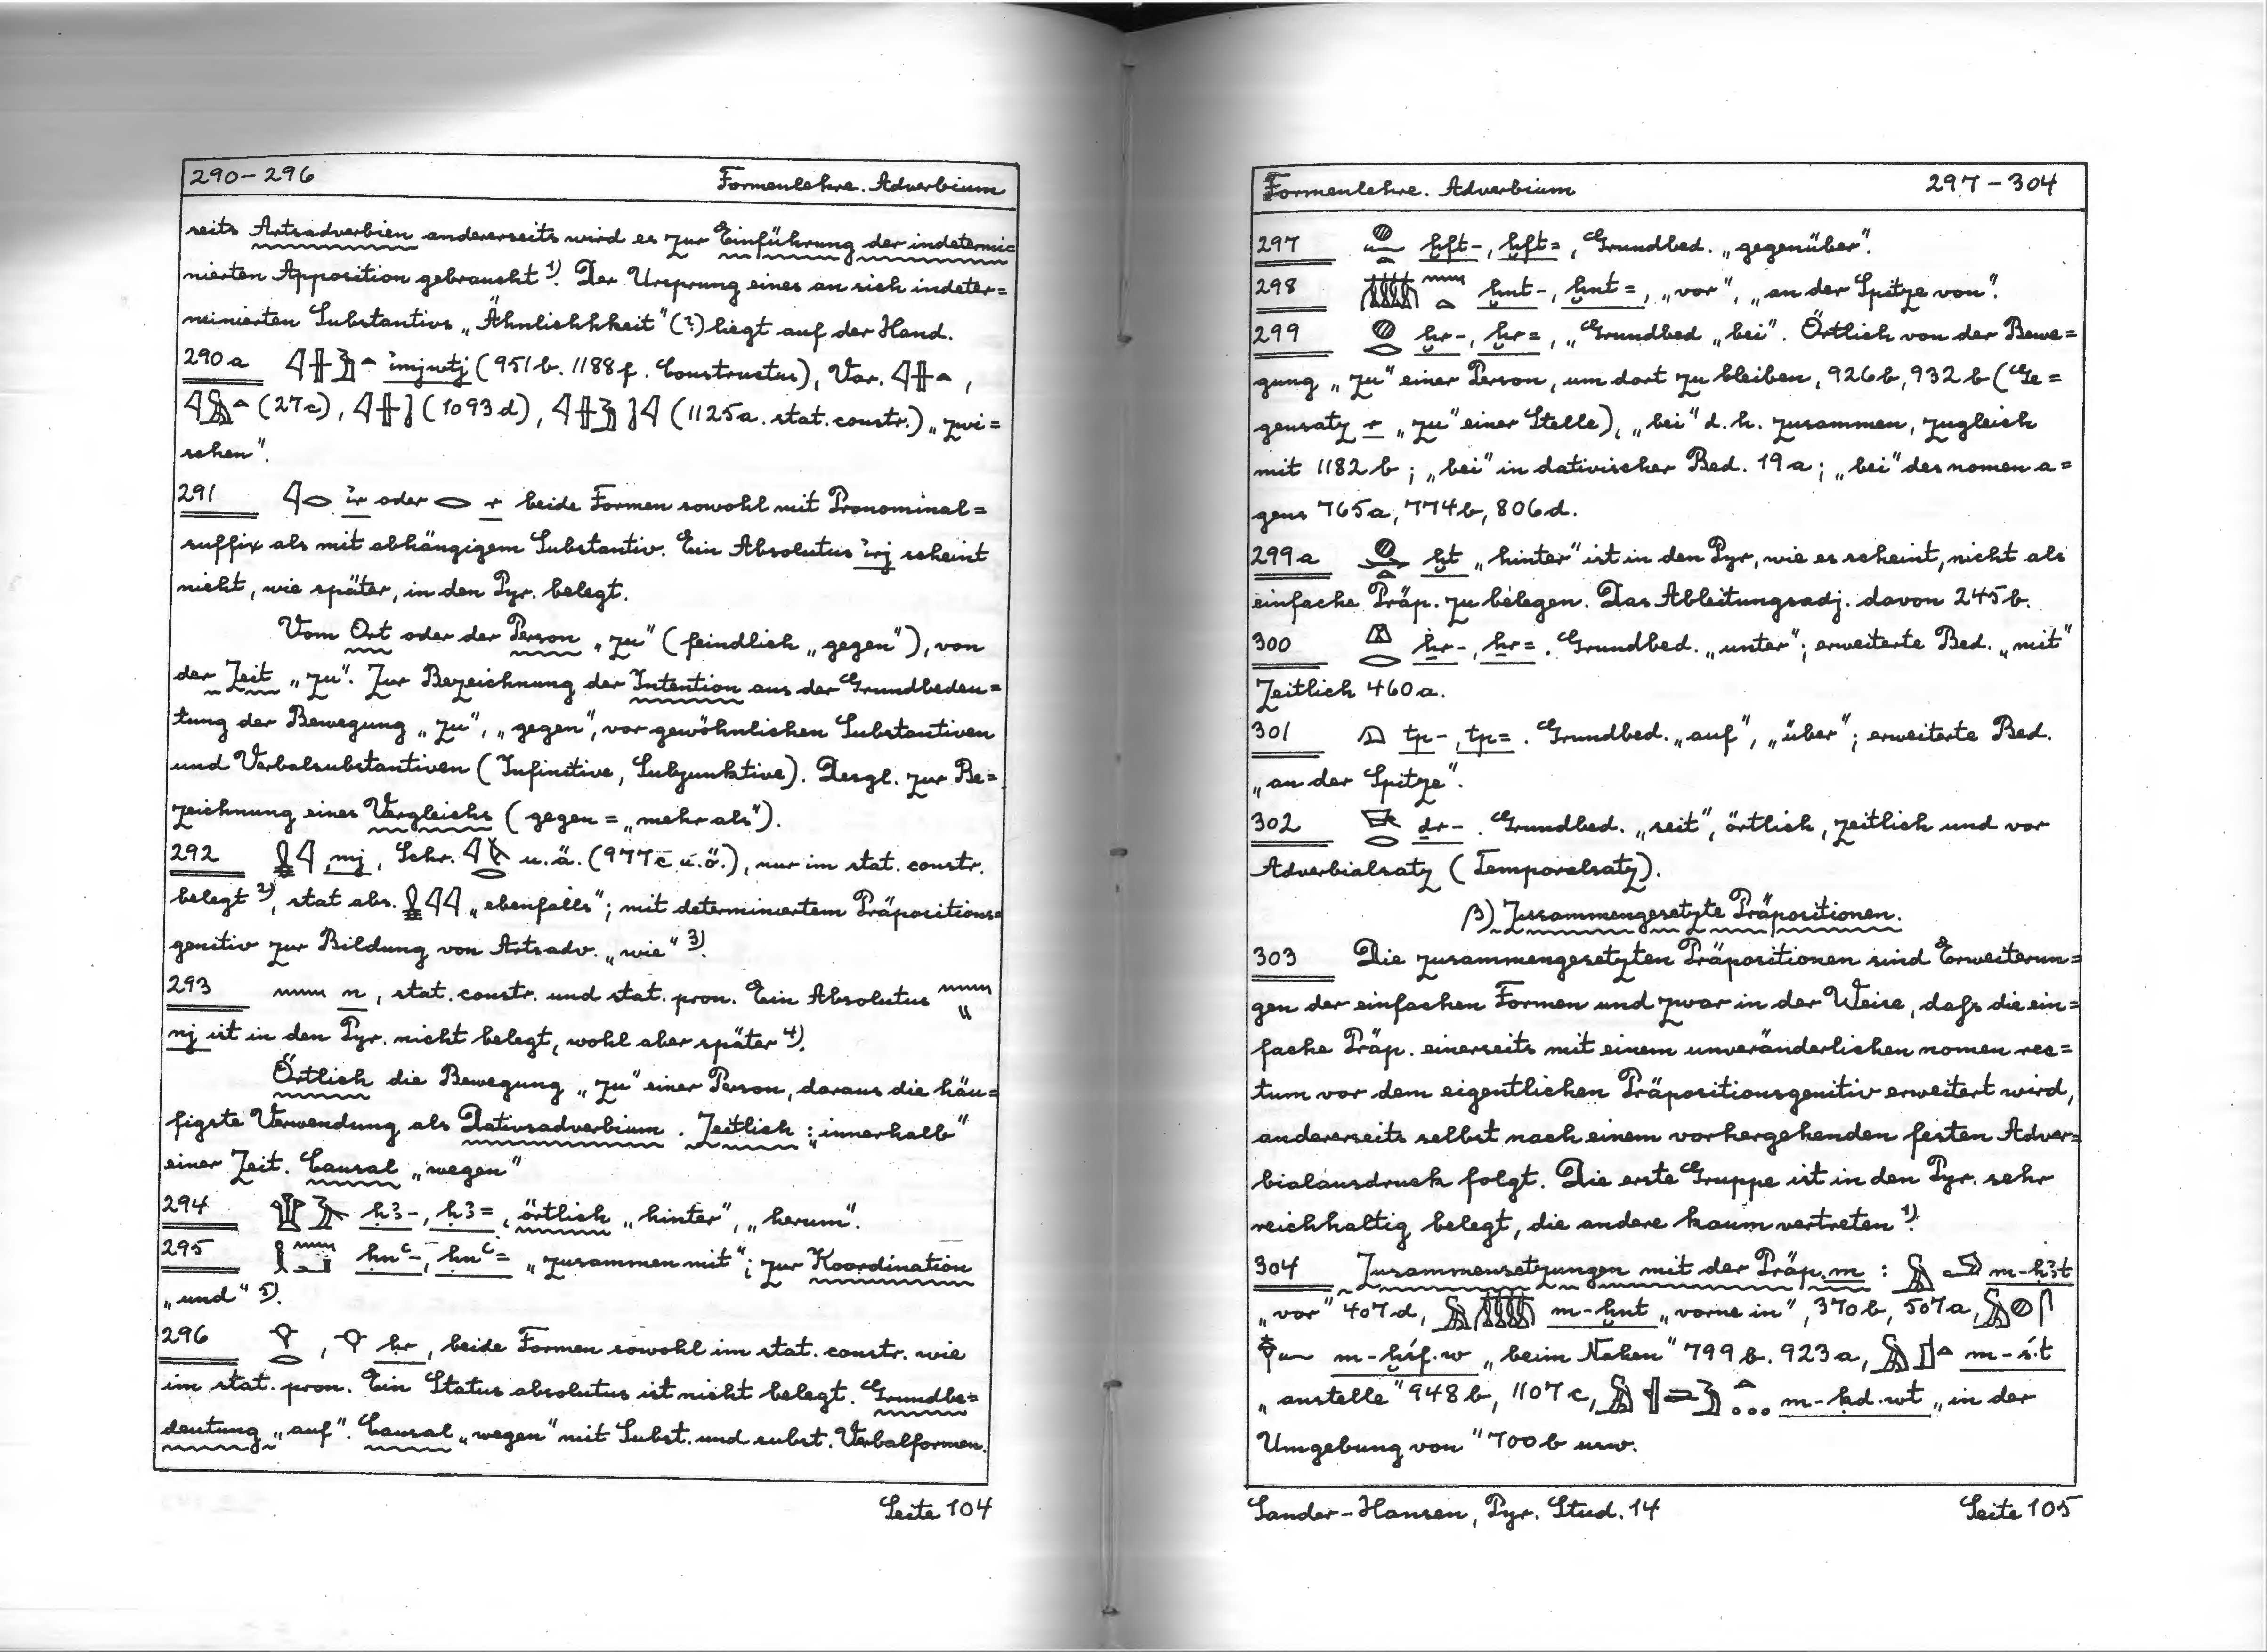 290-296 Formenlehre. Adverbium
seits Artsadverbien andererseits wird es zur Einführung der indetermi=
nierten Apposition gebraucht 1). Der Ursprung eines an sich indeter=
minierten Substantivs „Ähnlichhkeit" (?) liegt auf der Hand.
290a 𓇋𓏶𓅱𓏏 ı͗mjwtj (951b. 1188f. Constructus), Var. 𓇋𓏶𓏏,
𓇋𓅓𓏏 (27c), 𓇋𓏶 (1093d), 𓇋𓏶𓅱𓇋 (1125a. stat. constr.) „zwi=
schen".
291 𓇋𓂋 ı͗r oder 𓂋 r beide Formen sowohl mit Pronominal=
suffix als mit abhängigem Substantiv. Ein Absolutus ı͗rj scheint
nicht, wie später, in den Pyr. belegt.
Vom Ort oder der Person „zu" (feindlich „gegen"), von
der Zeit „zu". Zur Bezeichnung der Intention aus der Grundbedeu=
tung der Bewegung „zu", „gegen", vor gewöhnlichen Substantiven
und Verbalsubstantiven (Infinitive, Subjunktive). Desgl. zur Be=
zeichnung eines Vergleichs (gegen = „mehr als").
292 𓏇𓇋 mj, Schr. 𓇋 𓂋 u.ä. (977c u.ö.), nur im stat. constr.
belegt 2), stat abs. 𓏇𓇋𓇋 „ebenfalls"; mit determiniertem Präpositions=
genitiv zur Bildung von Artsadv. „wie" 3).
293 𓈖 n, stat. constr. und stat. pron. Ein Absolutus 𓈖𓏭
nj ist in den Pyr. nicht belegt, wohl aber später 4).
Örtlich die Bewegung „zu" einer Person, daraus die häu=
figste Verwendung als Dativadverbium. Zeitlich: „innerhalb"
einer Zeit. Causal „wegen"
294 𓇉𓄿 ḥꜣ-, ḥꜣ=, örtlich „hinter", „herum".
295 𓎛𓈖𓂝 ḥnꜥ-, ḥnꜥ= „zusammen mit"; zur Koordination
„und" 5).
296 𓁷𓂋, 𓁷 ḥr, beide Formen sowohl im stat. constr. wie
im stat. pron. Ein Status absolutus ist nicht belegt. Grundbe=
deutung „auf". Causal „wegen" mit Subst. und subst. Verbalformen.
Seite 104
Formenlehre. Adverbium 297-304
297 𓐍𓆑𓏏 ḫft-, ḫft=, Grundbed. „gegenüber".
298 𓏃𓈖𓏏 ḫnt-, ḫnt=, „vor", „an der Spitze von".
299 𓐍𓂋 ḫr-, ḫr=, „Grundbed „bei". Örtlich von der Bewe=
gung „zu" einer Person, um dort zu bleiben, 926b, 932b (Ge=
gensatz r „zu" einer Stelle), „bei" d.h. zusammen, zugleich
mit 1182b; „bei" in dativischer Bed. 19a; „bei" des nomen a=
gens 765a, 774b, 806d.
299a 𓐍𓏏 ḫt „hinter" ist in den Pyr, wie es scheint, nicht als
einfache Präp. zu belegen. Das Ableitungsadj. davon 245b.
300 𓌨𓂋 ẖr-, ẖr=. Grundbed. „unter"; erweiterte Bed. „mit"
Zeitlich 460a.
301 𓁶 tp-, tp=. Grundbed. „auf", „über"; erweiterte Bed.
„an der Spitze".
302 𓇥𓂋 dr-. Grundbed. „seit", örtlich, zeitlich und vor
Adverbialsatz (Temporalsatz).
β) Zusammengesetzte Präpositionen.
303 Die zusammengesetzten Präpositionen sind Erweiterun=
gen der einfachen Formen und zwar in der Weise, dafs die ein=
fache Präp. einerseits mit einem unveränderlichen nomen rec=
tum vor dem eigentlichen Präpositionsgenitiv erweitert wird,
andererseits selbst nach einem vorhergehenden festen Adver=
bialausdruck folgt. Die erste Gruppe ist in den Pyr. sehr
reichhaltig belegt, die andere kaum vertreten 1).
304 Zusammensetzungen mit der Präp. m: 𓅓𓄂 m-ḥꜣt
„vor" 407d, 𓅓𓏃 m-ḫnt „vorne in", 370b, 507a, 𓅓𓐍𓋴
𓆑 m-ḫśf.w „beim Nahen" 799b. 923a, 𓅓𓊨𓏏 m-ś.t
„anstelle" 948b, 1107c, 𓅓𓐪𓂧𓅱𓏏 m-ḳd.wt „in der
Umgebung von" 700b usw.
Sander-Hansen, Pyr. Stud. 14 Seite 105